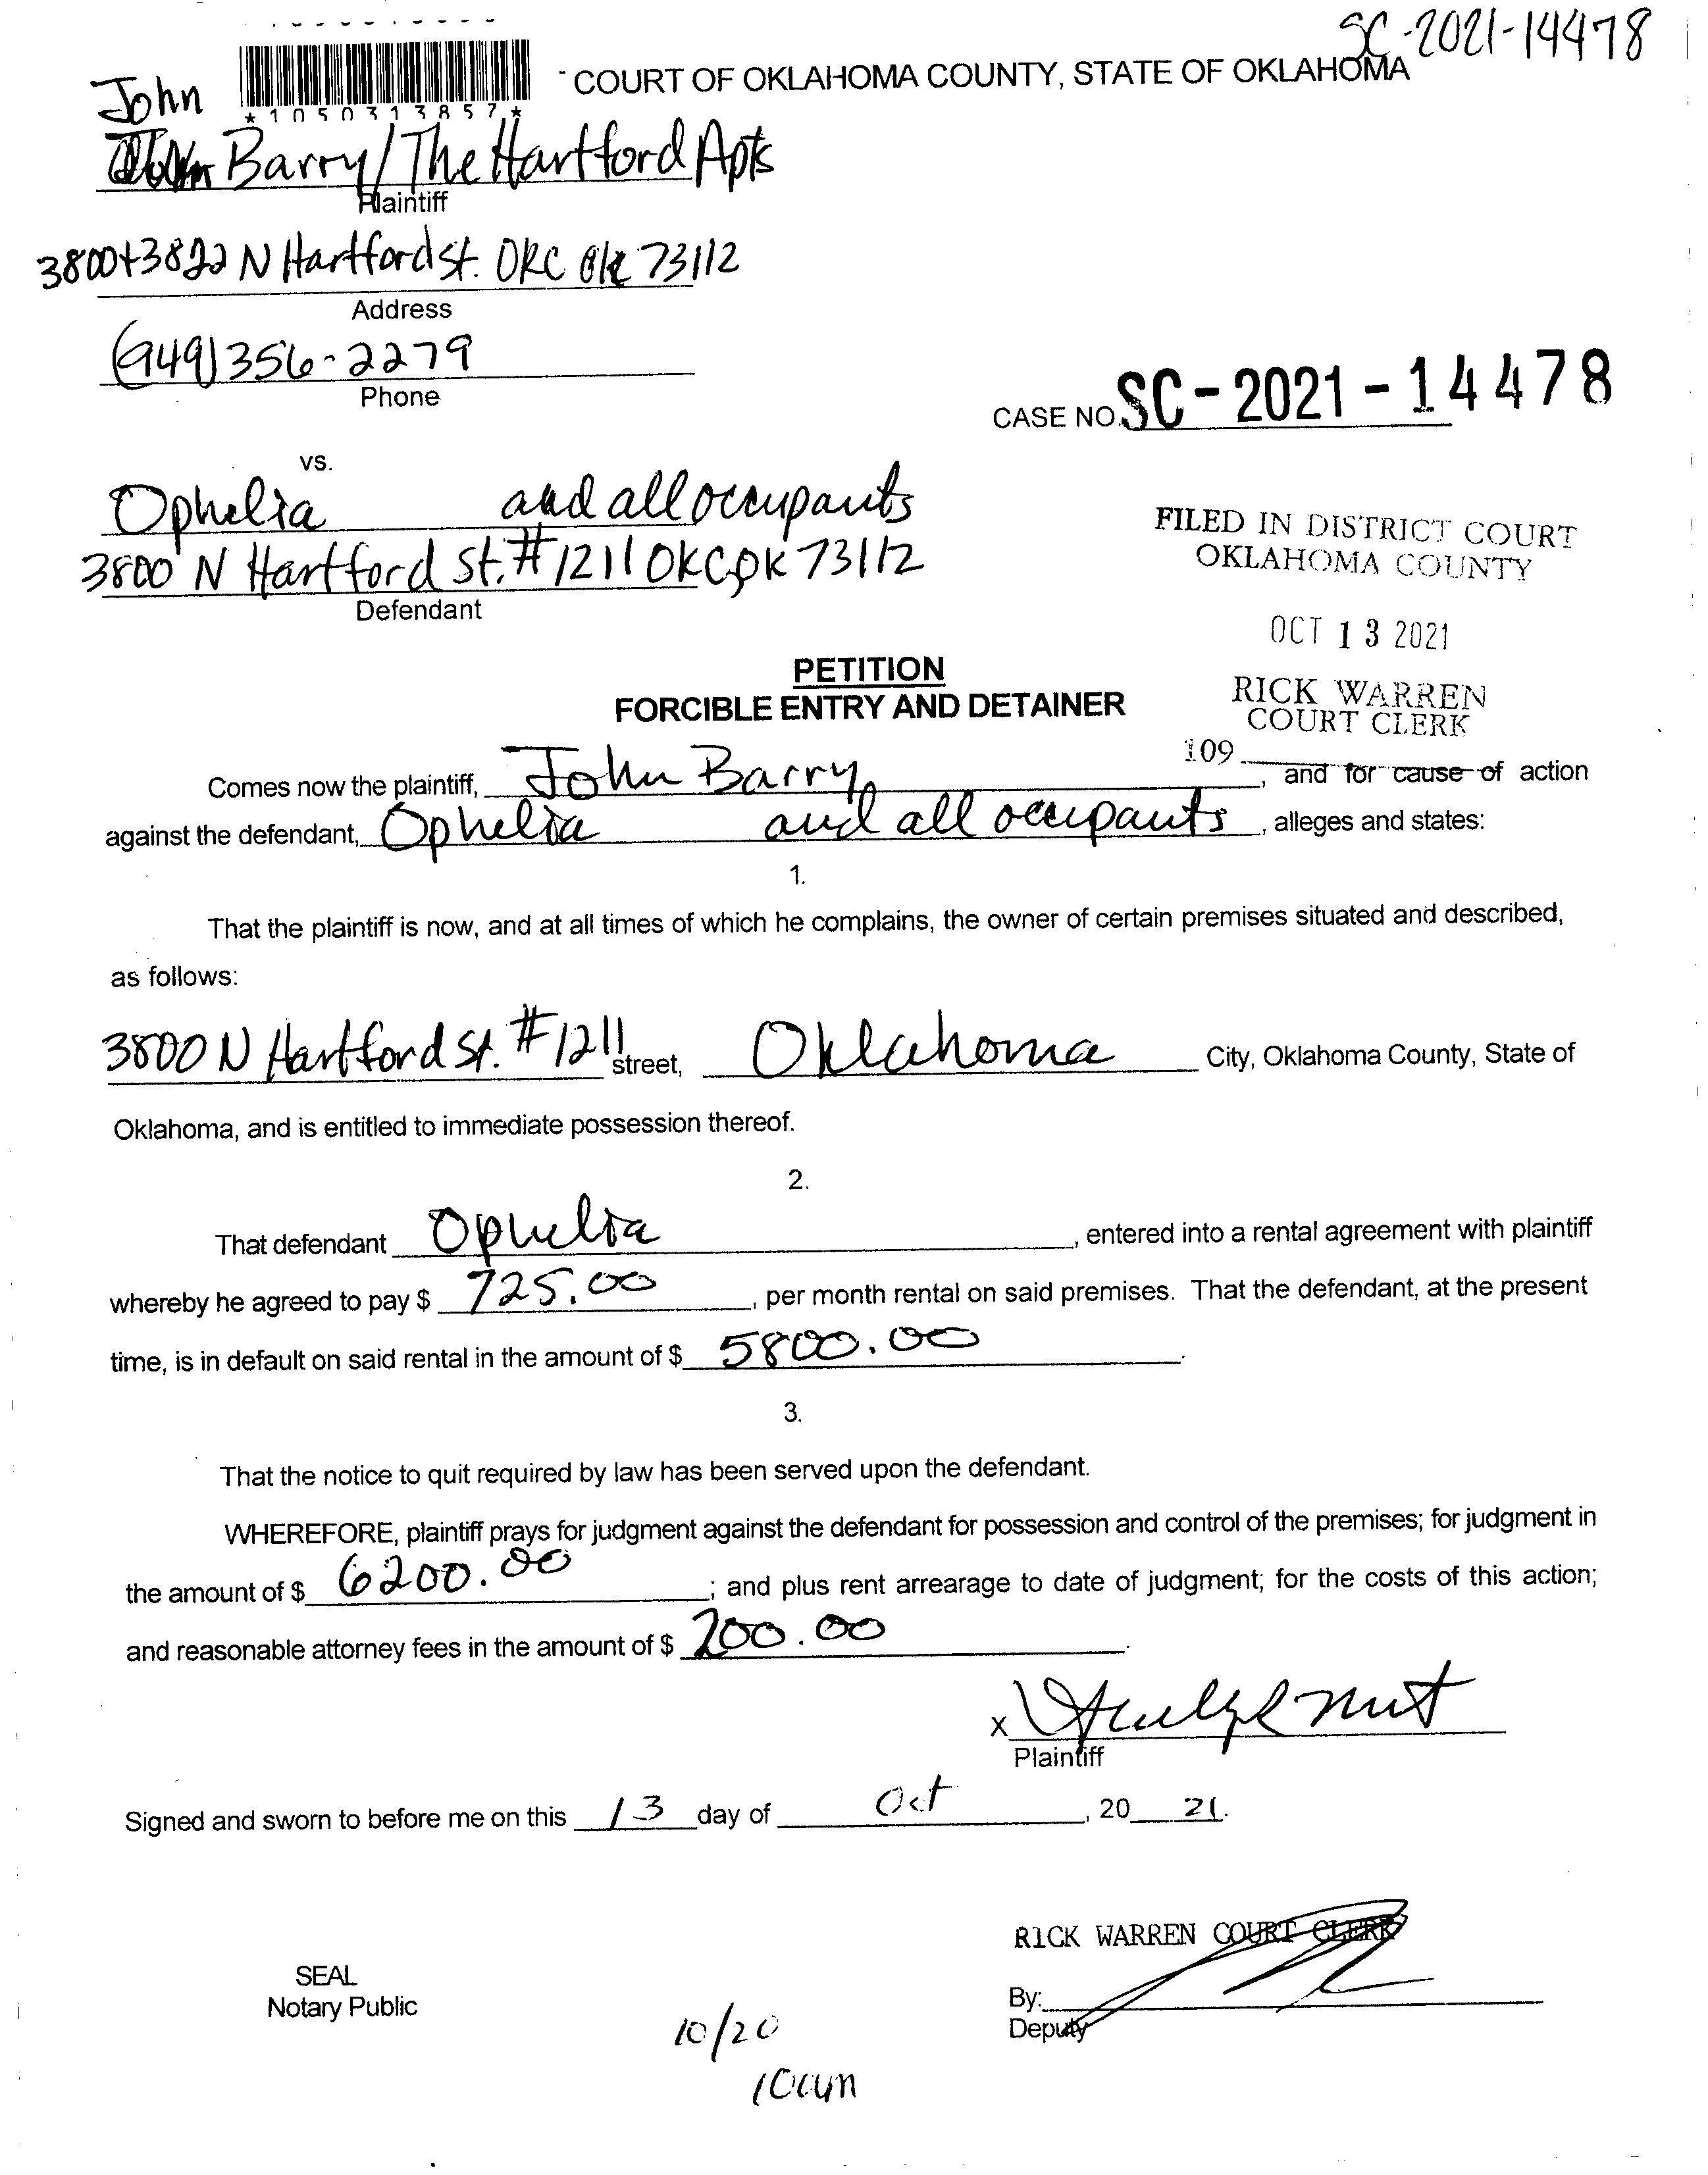 SC-2021-14478
COURT OF OKLAHOMA COUNTY, STATE OF OKLAHOMA
*1050313857*
John
Barry/The Hartford Apts
Plaintiff
3800+3822 N Hartford St. OKC Ok 73112
Address
(949) 356-2279
Phone
CASE NO. SC-2021-14478
vs.
Ophelia and all occupants
3800 N Hartford St. #1211 OKC OK 73112
Defendant
FILED IN DISTRICT COURT
OKLAHOMA COUNTY
OCT 13 2021
RICK WARREN
COURT CLERK
109
PETITION
FORCIBLE ENTRY AND DETAINER
Comes now the plaintiff, John Barry, and for cause of action
against the defendant, Ophelia and all occupants, alleges and states:
1.
That the plaintiff is now, and at all times of which he complains, the owner of certain premises situated and described,
as follows:
3800 N Hartford St. #1211 street, Oklahoma City, Oklahoma County, State of
Oklahoma, and is entitled to immediate possession thereof.
2.
That defendant Ophelia, entered into a rental agreement with plaintiff
whereby he agreed to pay $ 725.00, per month rental on said premises. That the defendant, at the present
time, is in default on said rental in the amount of $ 5800.00.
3.
That the notice to quit required by law has been served upon the defendant.
WHEREFORE, plaintiff prays for judgment against the defendant for possession and control of the premises; for judgment in
the amount of $ 6200.00; and plus rent arrearage to date of judgment; for the costs of this action;
and reasonable attorney fees in the amount of $ 200.00.
X
Plaintiff
Signed and sworn to before me on this 13 day of Oct, 20 21.
RICK WARREN COURT CLERK
SEAL
Notary Public
By:
Deputy
10/20
10am